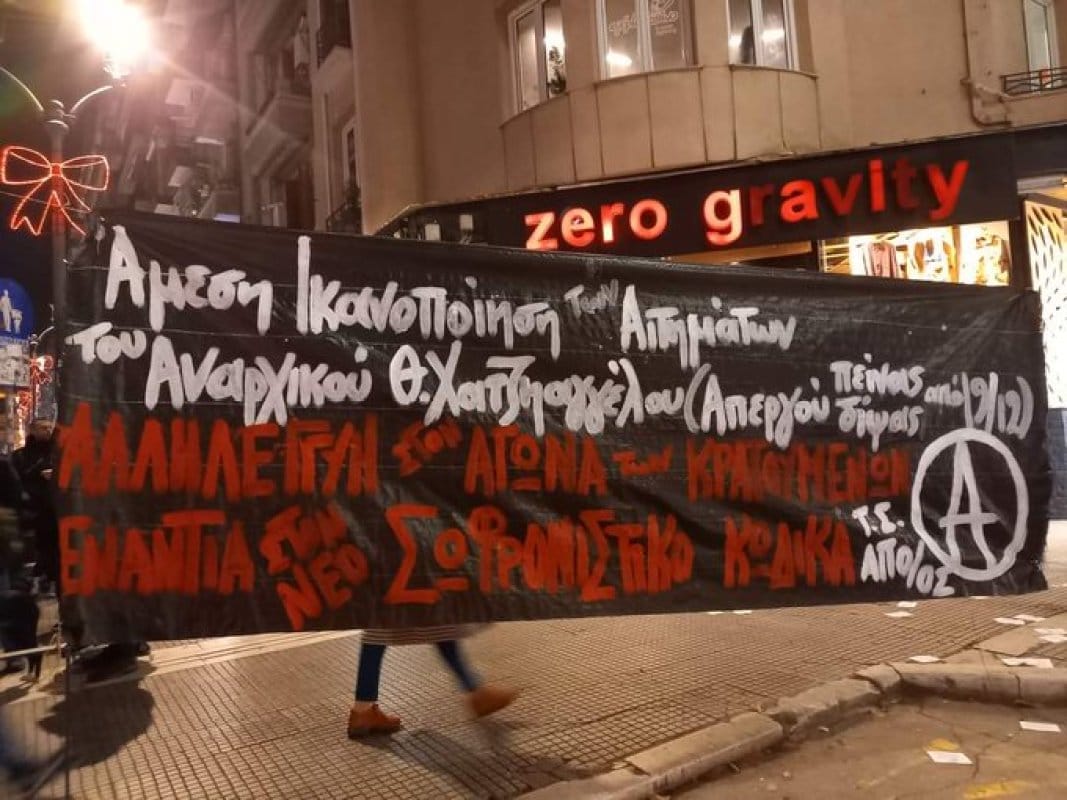 zero gravity
Άμεση Ικανοποίηση των Αιτημάτων
του Αναρχικού Θ. Χατζηαγγέλου (Απεργού πείνας δίψας από 19/12)
ΑΛΛΗΛΕΓΓΥΗ στον ΑΓΩΝΑ των ΚΡΑΤΟΥΜΕΝΩΝ
ΕΝΑΝΤΙΑ ΣΤΟΝ ΝΕΟ ΣΩΦΡΟΝΙΣΤΙΚΟ ΚΩΔΙΚΑ Τ.Σ. ΑΠΟ/ΟΣ
A